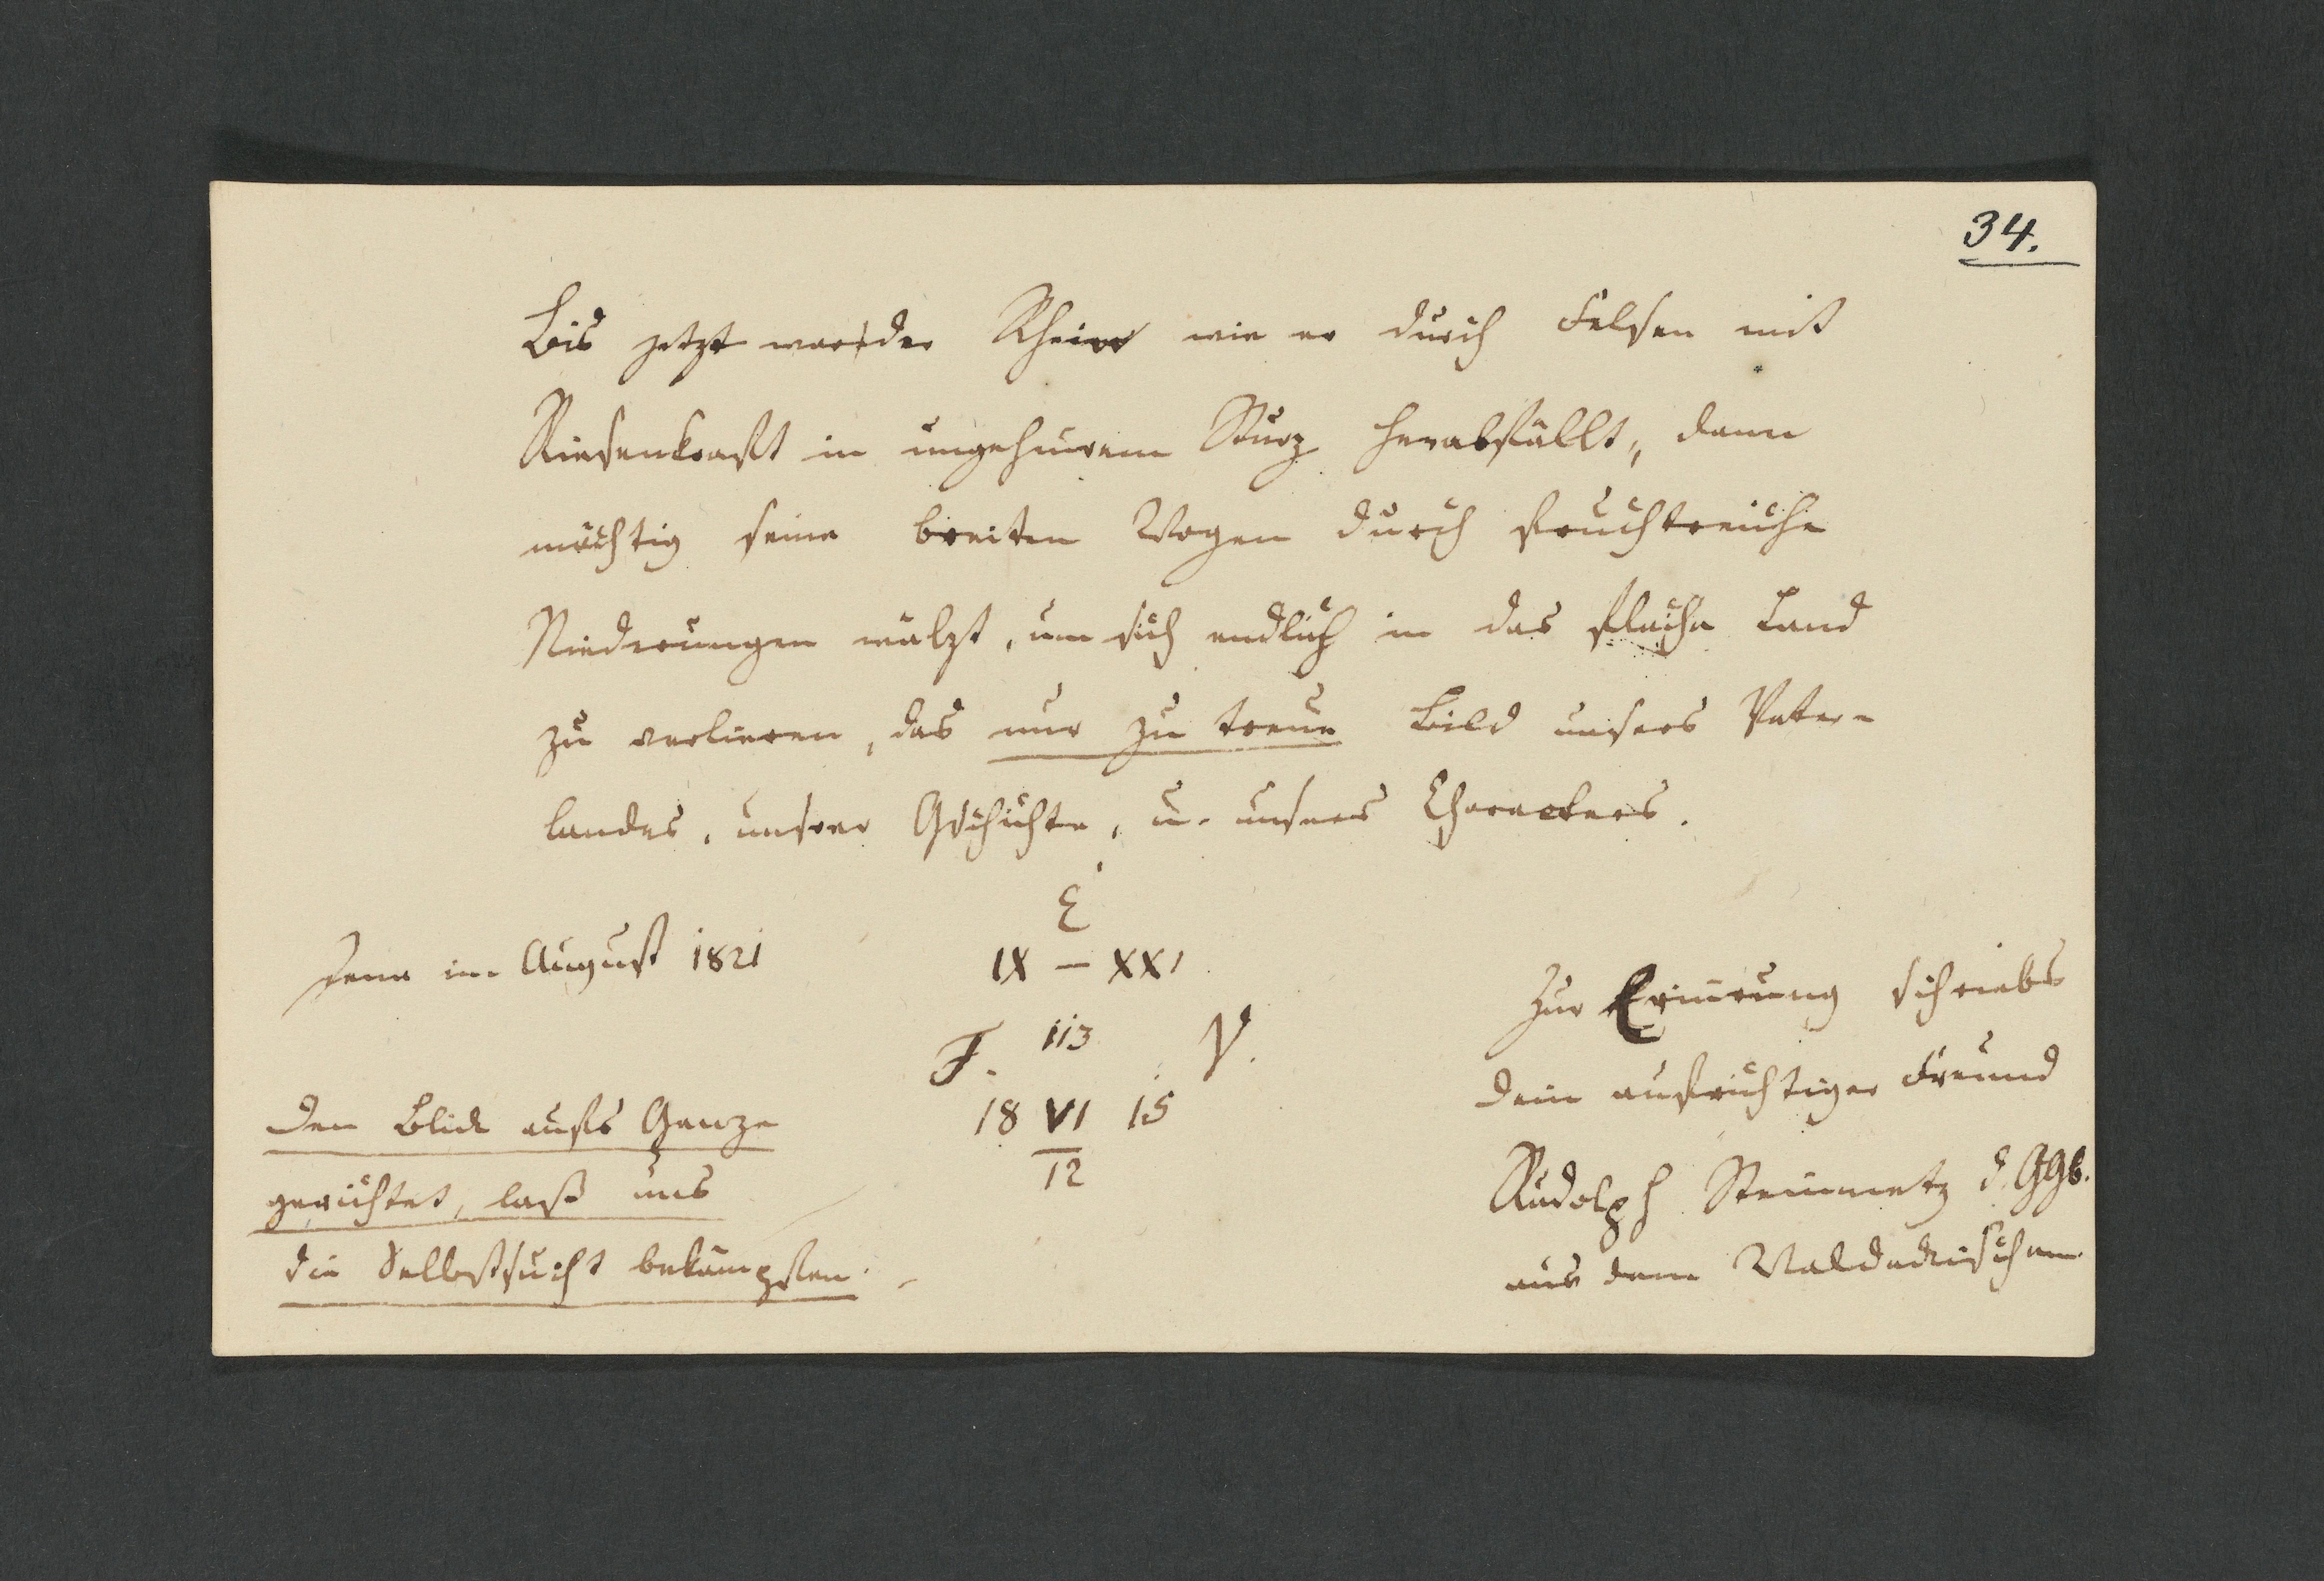 34.
Bis jetzt war der Rhein wie er durch Felsen mit
Riesenkraft in ungeheurem Sturz herabfällt, dann
mächtig seine breiten Wogen durch fruchtreiche
Niederungen wälzt, um sich endlich in das flache Land
zu verlieren, das nur zu treue Bild unsers Vater-
landes, unsrer Gschichte, u. unsers Characters.
E
Jena im August 1821
IX — XXI
F. 113 V.
18 VI 15
12
Den Blick aufs Ganze
gerichtet, laß uns
die Selbstsucht bekämpfen.
Zur Erinrung schriebs
Dein aufrichtiger Freund
Rudolph Steinmetz d. GGb.
aus dem Waldeckischen